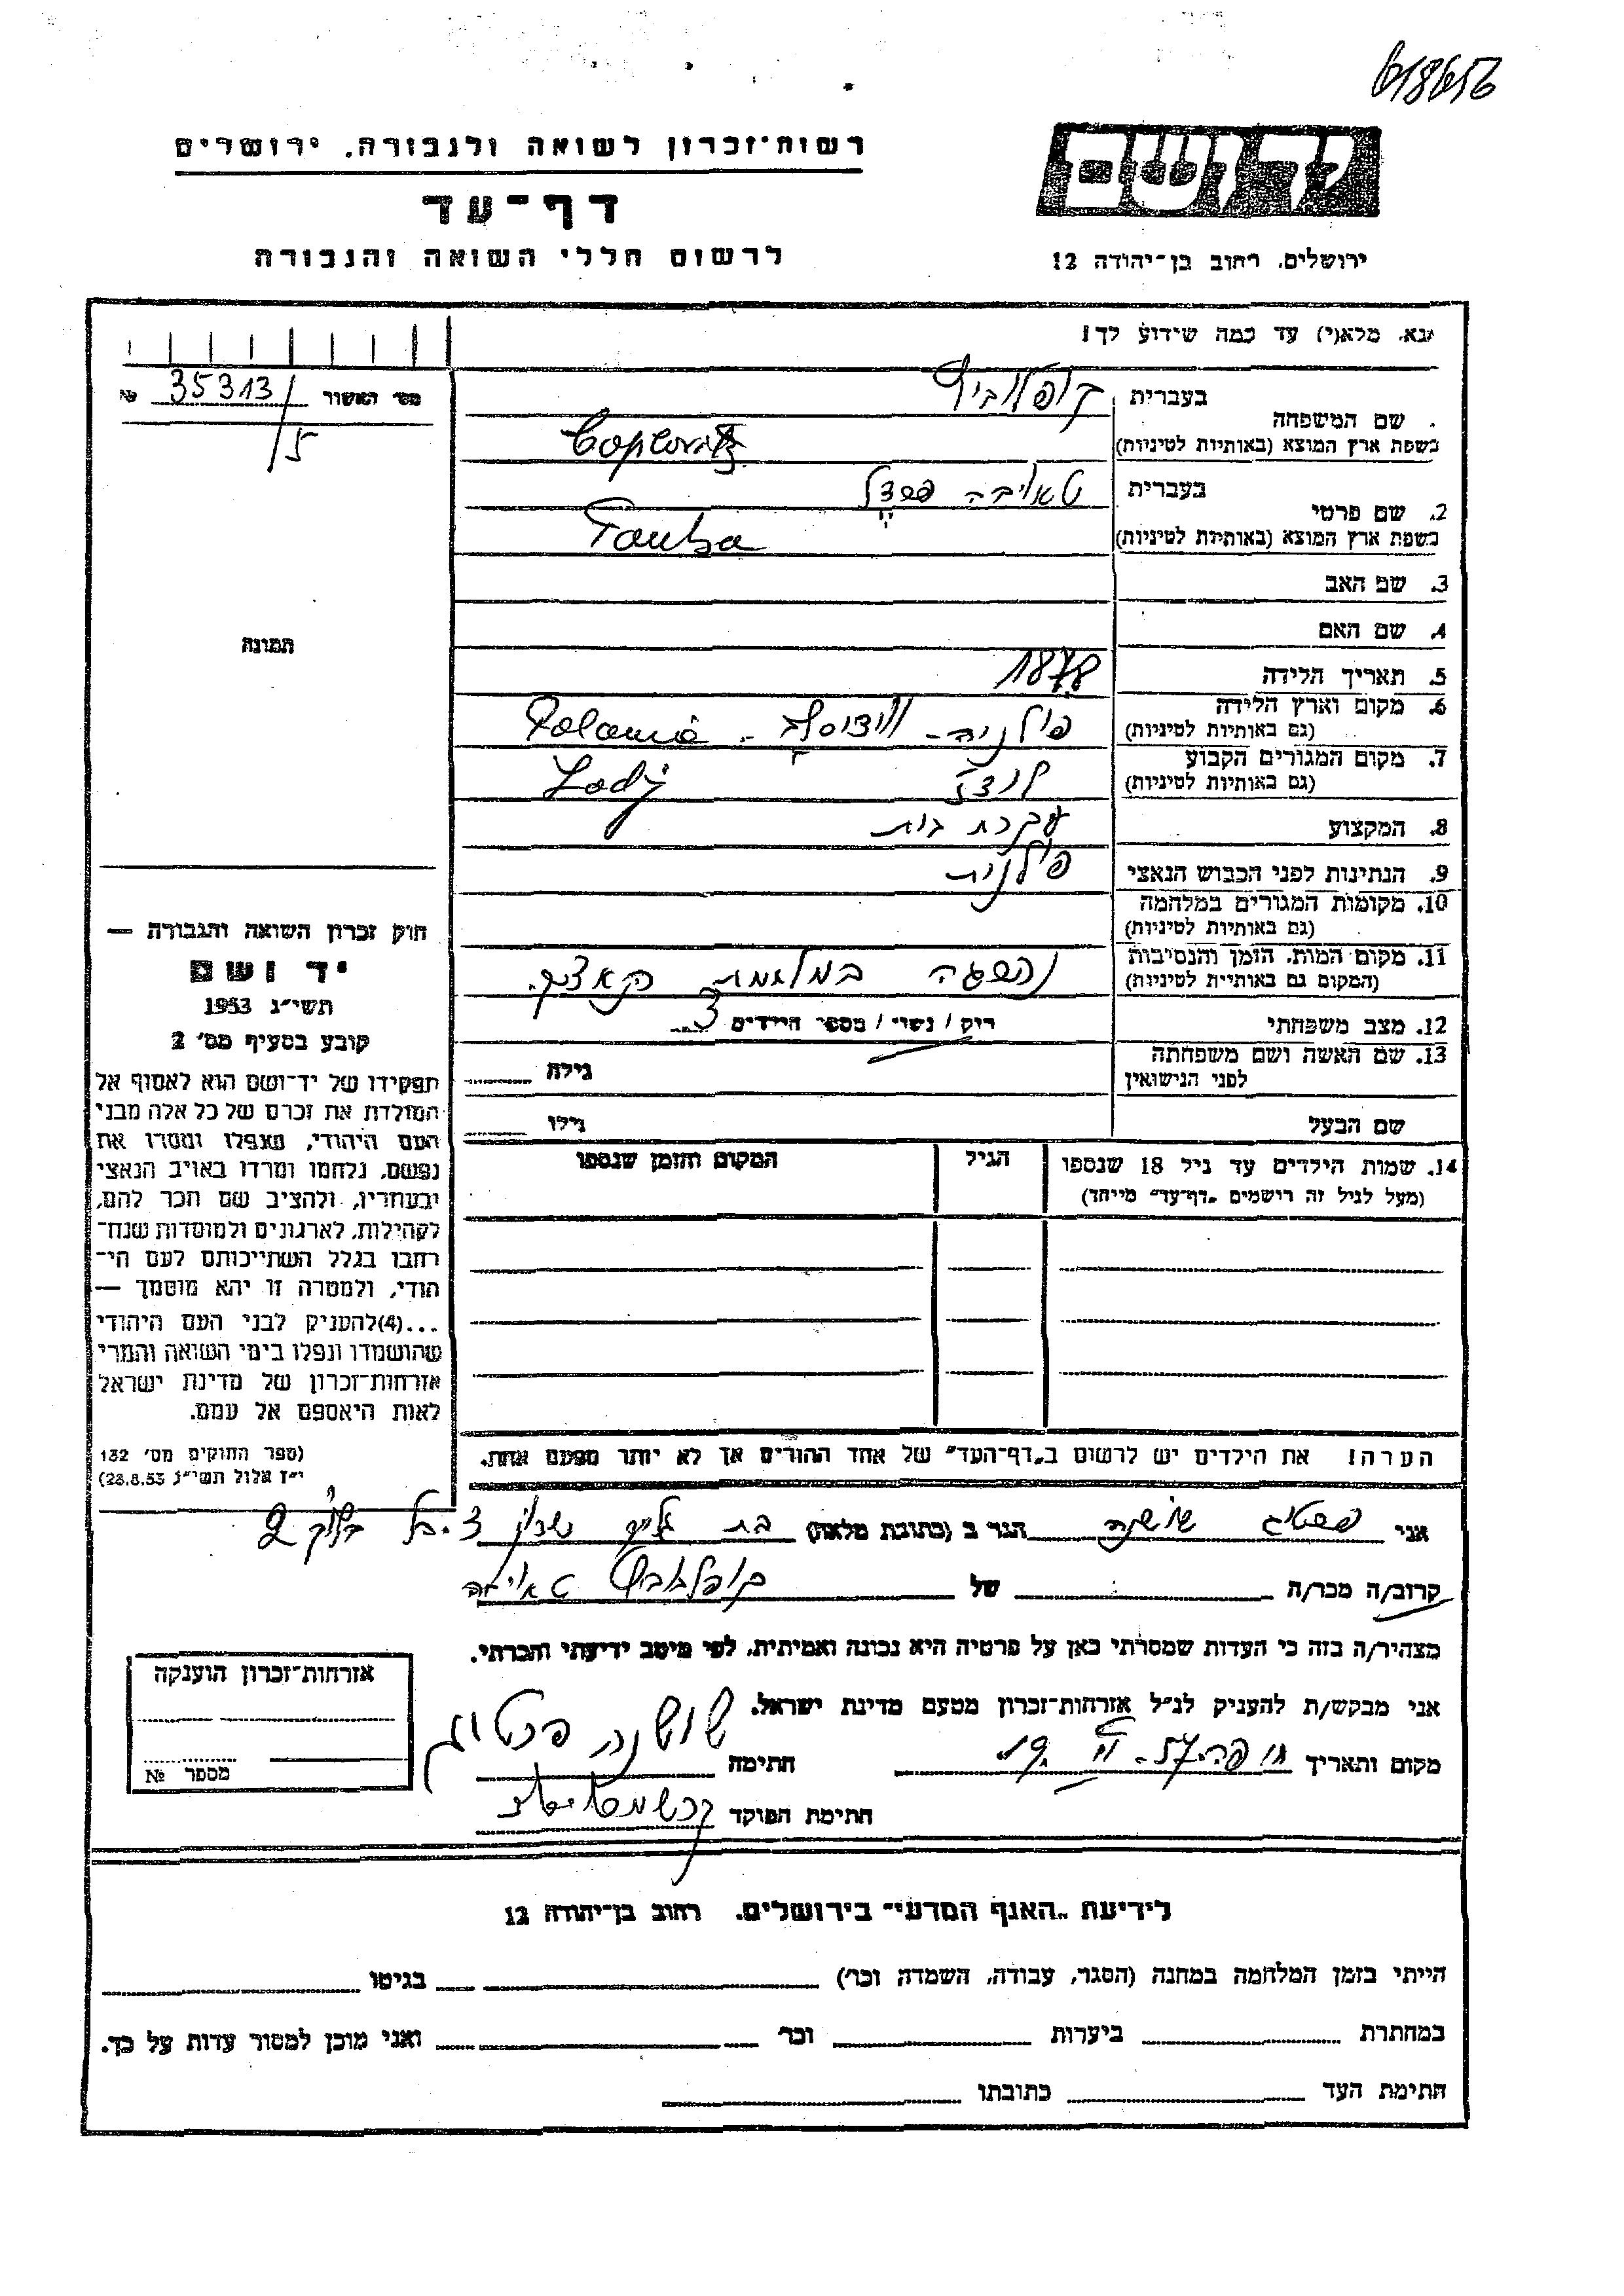 618656
רשות-זכרון לשואה ולגבורה. ירושלים
דף-עד
לרשום חללי השואה והגבורה
ירושלים. רחוב בן-יהודה 12
נא. מלא(י) עד כמה שידוע לך!
מס' האשור 35313/5 №
שם המשפחה
בעברית קופלוביץ
בשפת ארץ המוצא (באותיות לטיניות)
2. שם פרטי
בעברית טאובה
בשפת ארץ המוצא (באותיות לטיניות) Tauba
3. שם האב
4. שם האם
תמונה
5. תאריך הלידה 1878
6. מקום וארץ הלידה
(גם באותיות לטיניות) פולניה -
7. מקום המגורים הקבוע
(גם באותיות לטיניות) לודז Lodj
8. המקצוע עקרת בית
9. הנתינות לפני הכבוש הנאצי פולנית
10. מקומות המגורים במלחמה
(גם באותיות לטיניות)
11. מקום המות. הזמן והנסיבות
(המקום גם באותיית לטיניות) נהפגה במלחמת
12. מצב משפחתי רוק / נשוי / מספר הילדים 3
13. שם האשה ושם משפחתה
לפני הנישואין גילה
שם הבעל גילו
14. שמות הילדים עד גיל 18 שנספו הגיל המקום והזמן שנספו
(מעל לגיל זה רושמים „דף-עד" מייחד)
הערה! את הילדים יש לרשום ב„דף-העד" של אחד ההורים אך לא יותר מפעם אחת.
חוק זכרון השואה והגבורה —
יד ושם
תשי"ג 1953
קובע בסעיף מס' 2
תפקידו של יד-ושם הוא לאסוף אל
המולדת את זכרם של כל אלה מבני
העם היהודי, שנפלו ומסרו את
נפשם, נלחמו ומרדו באויב הנאצי
ובעוזריו, ולהציב שם וזכר להם,
לקהילות, לארגונים ולמוסדות שנח-
רבו בגלל השתייכותם לעם הי-
הודי, ולמטרה זו יהא מוסמך —
...(4)להעניק לבני העם היהודי
שהושמדו ונפלו בימי השואה והמרי
אזרחות-זכרון של מדינת ישראל
לאות היאספם אל עמם.
(ספר החוקים מס' 132
י"ז אלול תשי"ג 28.8.53)
אני שושנה הגר ב (כתובת מלאה) בת גלים שכון 2
קרוב/ה מכר/ה של קופלוביץ טאובה
מצהיר/ה בזה כי העדות שמסרתי כאן על פרטיה היא נכונה ואמיתית, לפי מיטב ידיעתי והכרתי.
אני מבקש/ת להעניק לנ"ל אזרחות-זכרון מטעם מדינת ישראל.
מקום ותאריך חתימה שושנה
חתימת הפוקד
אזרחות-זכרון הוענקה
מספר №
לידיעת „האגף המדעי" בירושלים. רחוב בן-יהודה 12
הייתי בזמן המלחמה במחנה (הסגר, עבודה, השמדה וכר) בגיטו
במחתרת ביערות וכר ואני מוכן למסור עדות על כך.
חתימת העד כתובתו